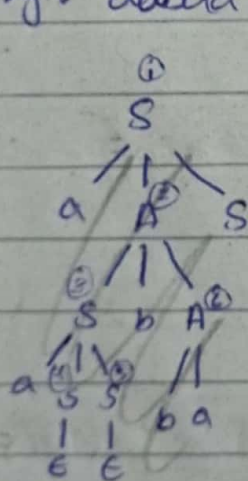 ①
S
a A② S
③ S b A⑥
a ④S S⑤ b a
ε ε